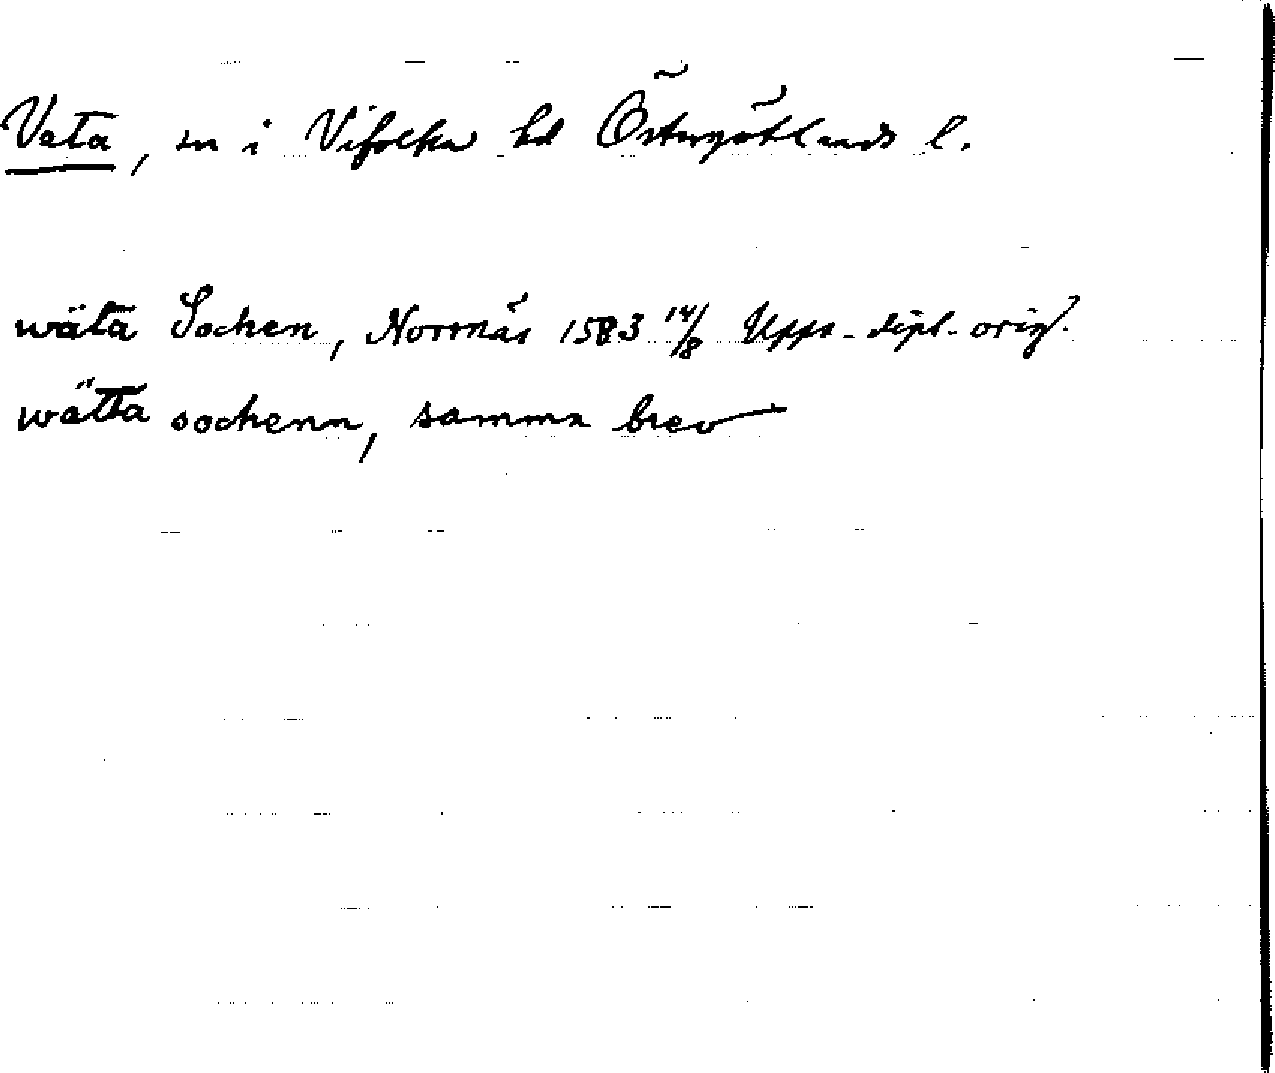 Veta, sn i Vifolka hd Östergötlands l.
wäta Sochen, Norrnäs 1583 14/8 Upps. dipl. orig.
wätta sochenn, samma brev